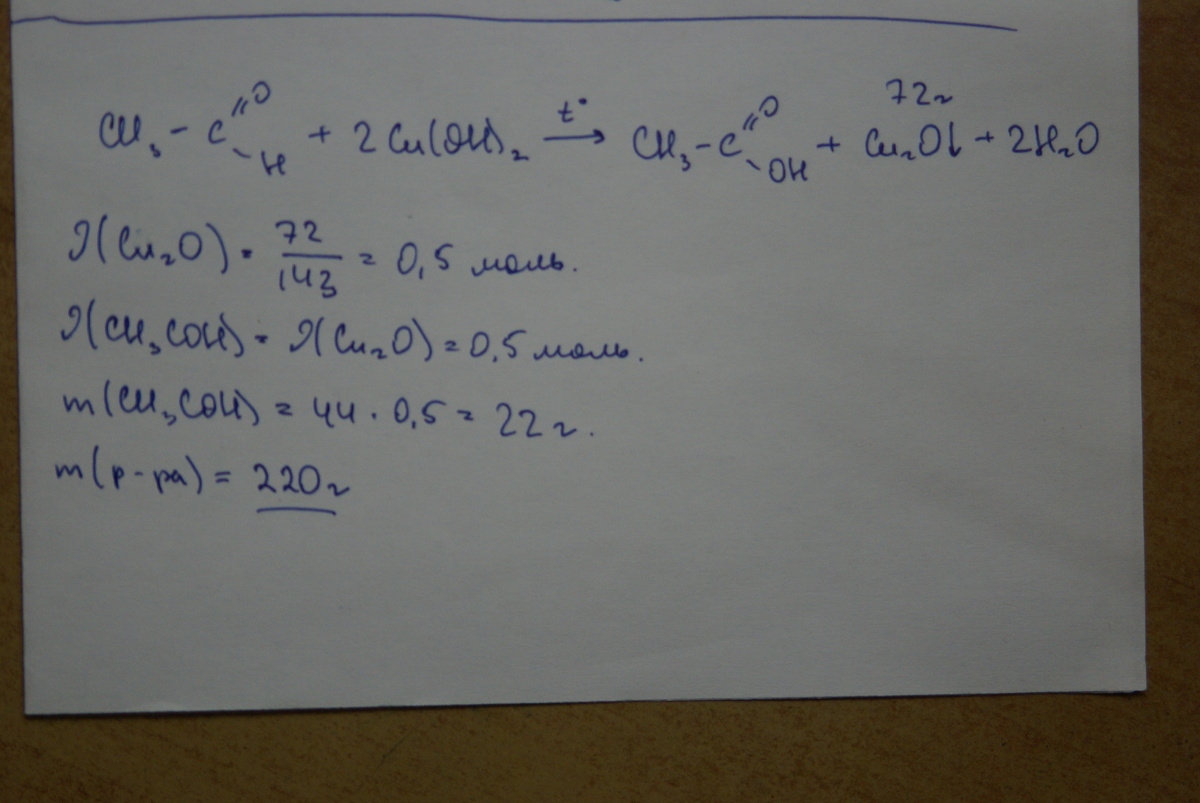 72г
CH₃-C(=O)-H + 2Cu(OH)₂ →t° CH₃-C(=O)-OH + Cu₂O↓ + 2H₂O
ν(Cu₂O) = 72/143 = 0,5 моль.
ν(CH₃COH) = ν(Cu₂O) = 0,5 моль.
m(CH₃COH) = 44 · 0,5 = 22 г.
m(р-ра) = 220г